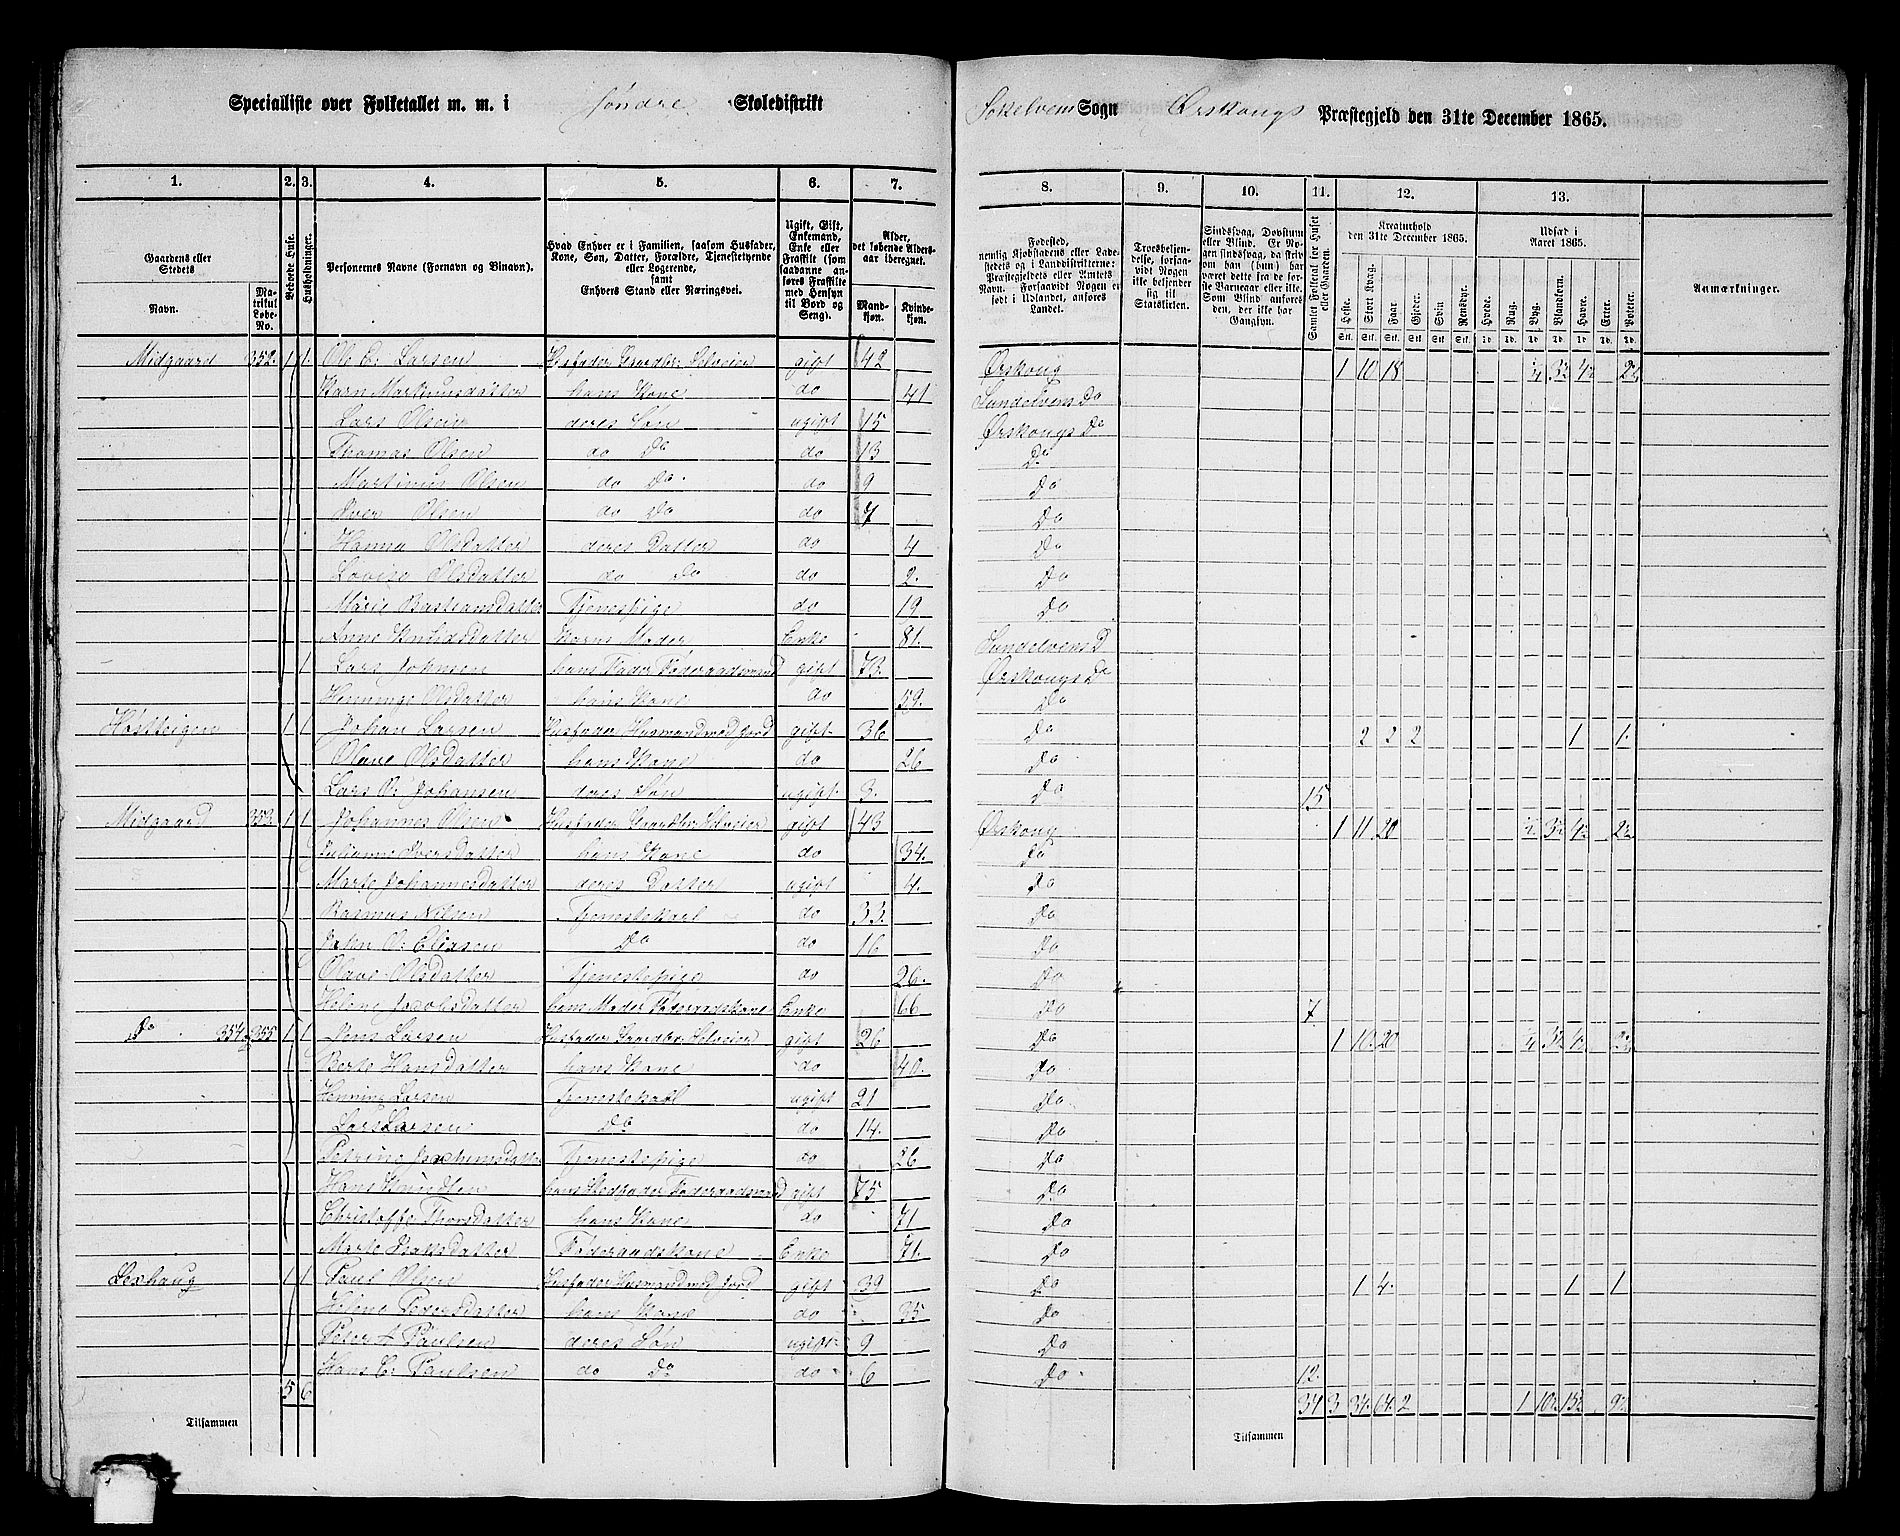 Specialliste over Folketallet m. m. i Søndre Skoledistrikt
Søkelvens Sogn Ørskougs Præstegjeld den 31te December 1865.
1. 2. 3. 4. 5. 6. 7.
8. 9. 10. 11. 12. 13.
Gaardens eller Stedets
Navn.
Matrikul Løbe-No.
Beboede Huse.
Husholdninger.
Personernes Navne (Fornavn og Binavn).
Hvad Enhver er i Familien, saasom Husfader, Kone, Søn, Datter, Forældre, Tjenestetyende eller Logerende, samt Enhvers Stand eller Næringsvei.
Ugift, Gift, Enkemand, Enke eller Fraskilt (som saadanne anføres Fraskilte med Hensyn til Bord og Seng).
Alder, det løbende Alders-aar iberegnet.
Mandkjøn.
Kvindekjøn.
Fødested,
nemlig Kjøbstadens eller Ladestedets og i Landdistrikterne: Præstegjeldets eller Amtets Navn. Forsaavidt Nogen er født i Udlandet, anføres Landet.
Troesbekjendelse, forsaavidt Nogen ikke bekjender sig til Statskirken.
Sindssvag, Døvstum eller Blind. Er Nogen sindssvag, da skrives om han (hun) har været dette fra de første Barneaar eller ikke. Som Blind anføres den, der ikke har Gangsyn.
Samlet Folketal for Huset eller Gaarden.
Kreaturhold den 31te December 1865.
Heste. Stort Kvæg. Faar. Gjeder. Svin. Rensdyr.
Udsæd i Aaret 1865.
Hvede. Rug. Byg. Blandkorn. Havre. Erter. Poteter.
Anmærkninger.
Midgaard 352. 1 1. Ole E. Larsen Husfader Gaardbr: Selveier gift 42 Ørskoug 1 10 18 ¼ 3½ 4½ 2½
Karn Markunsdatter hans Kone do 41 Sundelvens Do
Lars Olsen deres Søn ugift 15 Ørskougs Do
Thomas Olsen do Do do 13 Do
Martinus Olsen do Do do 9 Do
Iver Olsen do Do do 7 Do
Hanna Olsdatter deres Datter do 4 Do
Lovise Olsdatter do Do do 2. Do
Marie Bastiansdatter Tjenestpige do 19 Do
Anne Knudsdatter Karns Moder Enke 81. Sundelvens D
1 Lars Johnsen hans Fader Føderaadsmand gift 73. Ørskougs Do
Henninge Olsdatter hans Kone do 59. Do
1 1 Johan Larsen Husfader Husmand med Jord gift 36 Do 2 2 2 1 1.
Olave Olsdatter hans Kone do 26 Do
Lars O. Johansen deres Søn ugift 3. Do 15
Midgaard 353. 1 1 Johannes Olsen Husfader Gaardbr. Selveier gift 43 Ørskoug 1 11 20 ½ 3½ 4½ 2½
Julianne Iversdatter hans Kone do 34. Do
Marte Johannesdatter deres Datter ugift 4. Do
Rasmus Nilsen Tjenestekarl do 33. Do
John O. Eliasen Do do 16 Do
Olave Olsdatter Tjenestepige do 26. Do
Helene Jacobsdatter hans Moder Føderaadskone Enke 66 Do 7
Do 354 & 355 1 1 Jens Larsen Husfader Gaardbr Selveier gift 26 Do 1 10 20 ¼ 3½ 4½ 2½
Berte Hansdatter hans Kone do 40. Do
Henning Larsen Tjenestekarl ugift 21 Do
Lars Larsen Do do 14. Do
Petrine Jochumsdatter Tjenestepige do 26 Do
Hans Knudsen hans Stedfader Føderaadsmand gift 75 Do
Christoffe Thorsdatter hans Kone do 71 Do
Marte Isaksdatter Føderaadskone Enke 71. Do
Lexhaug 1 1 Paul Olsen Husfader Husmand med Jord gift 39 Do 1 4. 1 1
Helene Pedersdatter hans Kone do 35 Do
Peter A Paulsen deres Søn ugift 9 Do
Hans C. Paulsen do Do do 6 Do 12.
5 6
34 3 34. 64. 2 1 10½ 15½ 9½
Tilsammen
Tilsammen